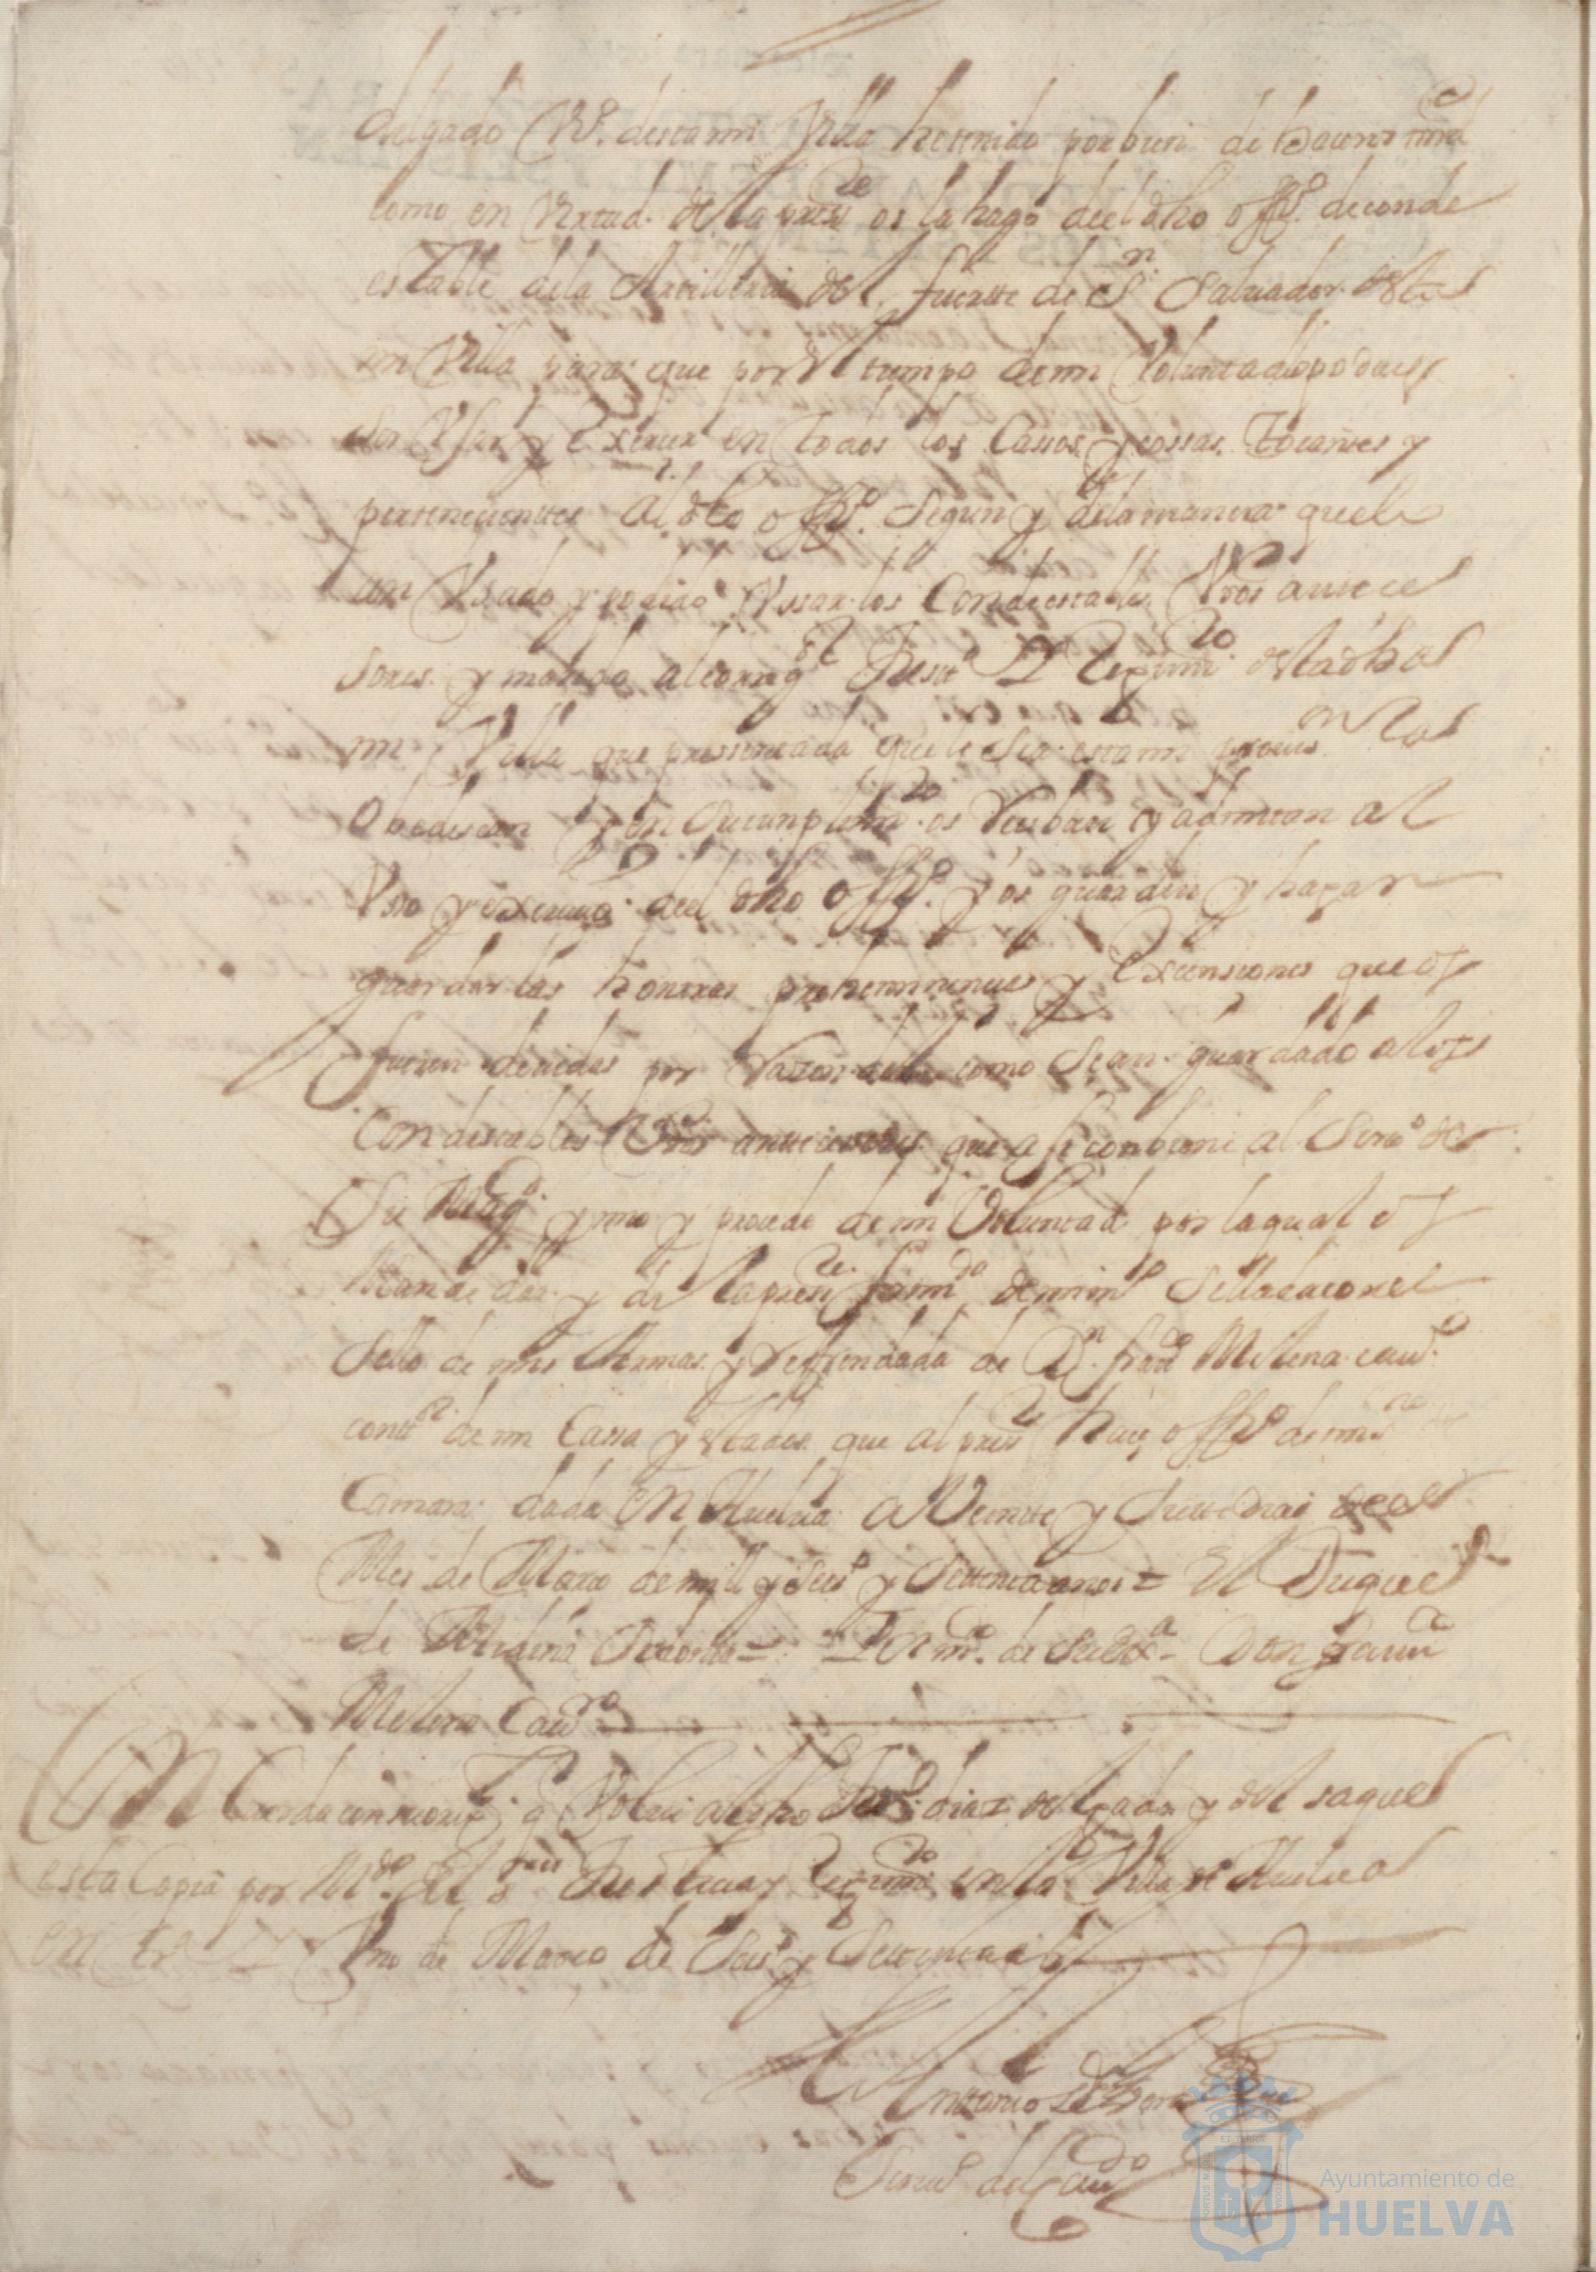 delgado Vº. desta mi Villa he tenido por bien de haceros mrd
como en Virtud de la presste os la hago del dho offº. de conde
estable de la Artilleria del fuerte de Sn Salvador desta
mi Villa para que por el tiempo de mi Voluntad podais
Usar y Exercer en todos los Cassos y cossas Tocantes y
pertenecientes al dho offº. Segun y de la manera que le
an Usado y podido Ussar los Condestables Vros antece
sores y mando al corregr Justª y Regimto desta dha
mi Villa que pressentada que le sea esta mi provission Los
Obedescan y en Su cumplimto os Reciban y admitan al
Uso y exercicio del dho offº. y os guarden y hagan
guardar las honrras prehemminencias y Excensiones que os
fueren devidas por Razon del como Se an guardado a los
Condestables Vros antecesores que assi combiene al Servº de
Su Magd. y mio y procede de mi Voluntad por la qual os
Mande dar y di la presste firmda de mi mº Sellada con el
Sello de mis Armas y Refrendada de Dn. franco Milena cavº
contr de mi Cassa y estados que al pressте hace offº de mi srio
Camara dada en Huelva a Veinte y Siette dias del
Mes de Março de mill y Seisº y Settenta anos = El Duque
de Medina Sidonia = Por mdo. de su Exª Don franco
Milena Cavº
Concuerda con su orixl. q Volvi al dho Juº. diaz delgado y del saque
esta Copia por Mdo. de los sres Justicia y Regimto en la Villa de Huelva
en trª y Uno de Março de Seisº y Settenta as
Antonio
Scrivº del Cavdo
Ayuntamiento de
HUELVA